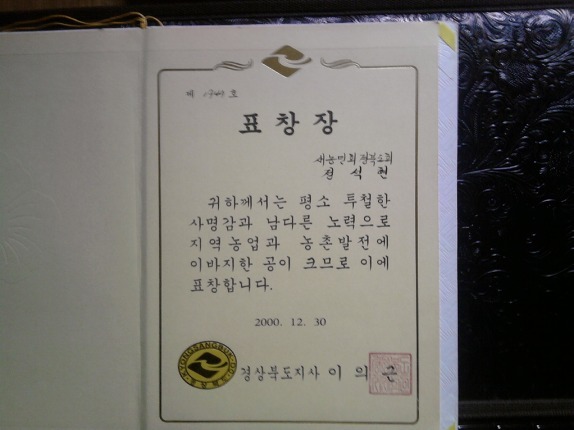 제 호
표창장
새농민회 경북도회
정 석 현
귀하께서는 평소 투철한
사명감과 남다른 노력으로
지역농업과 농촌발전에
이바지한 공이 크므로 이에
표창합니다.
2000. 12. 30
경상북도지사 이 의 근